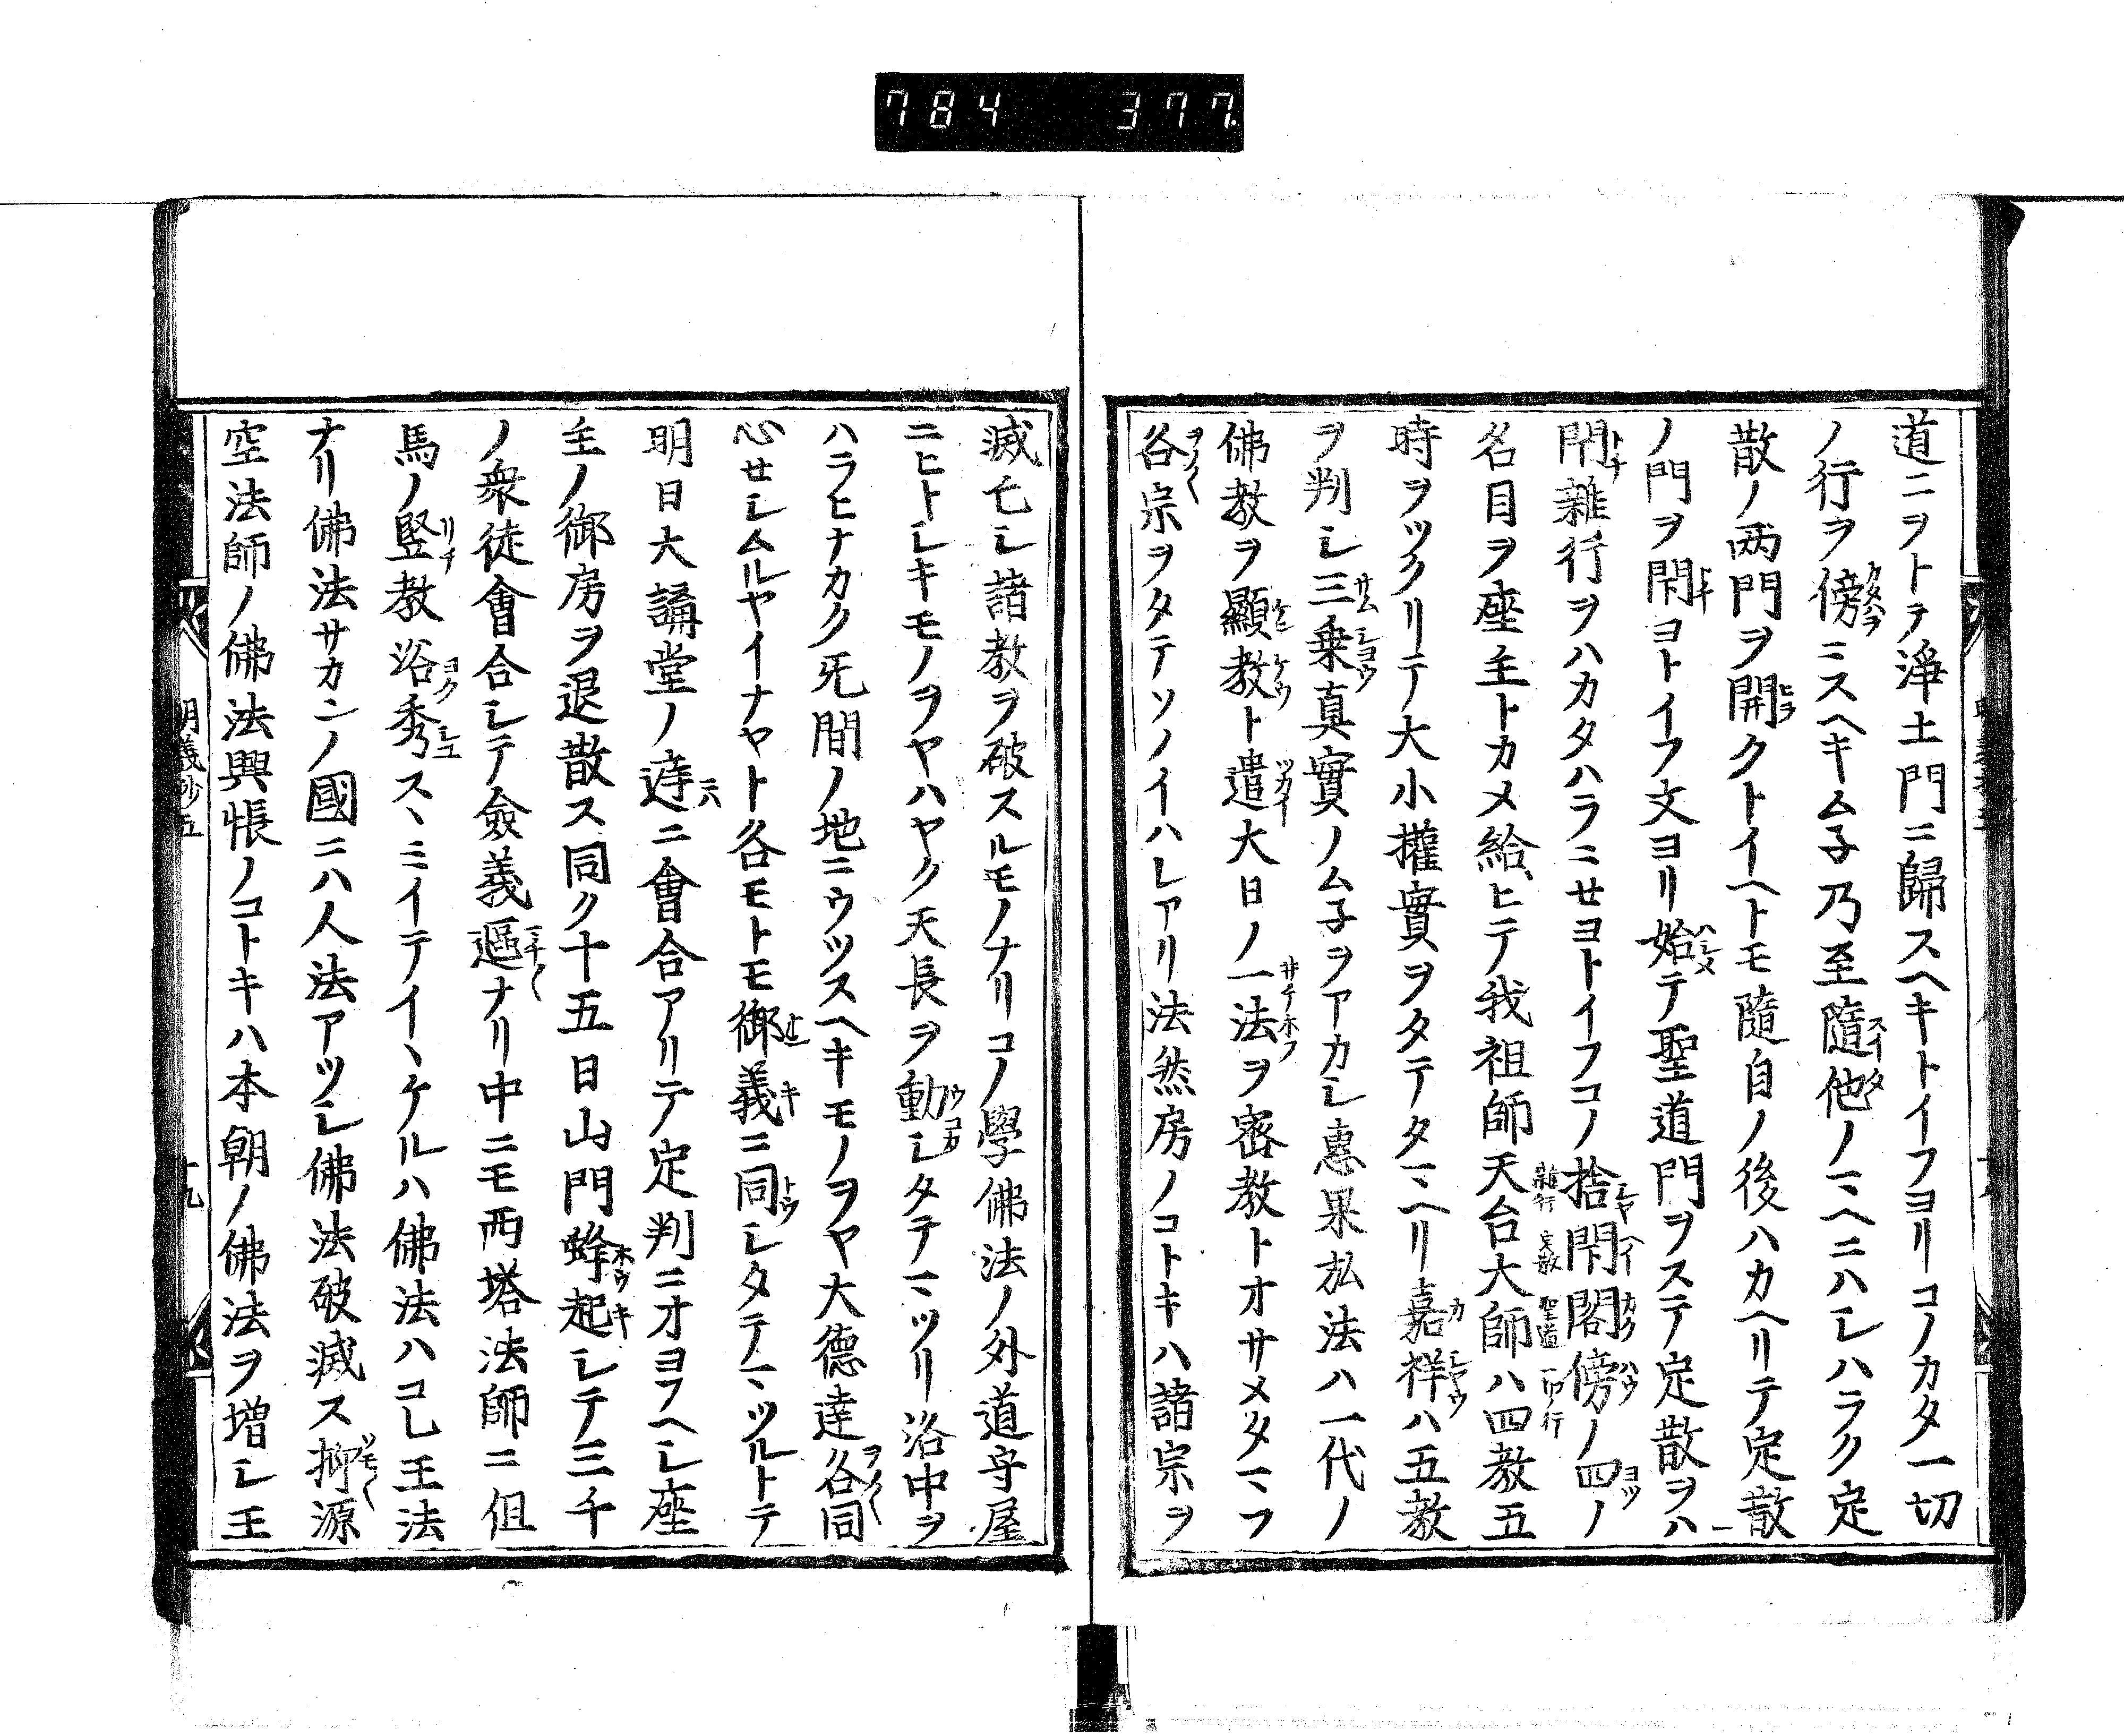 784 377.
道ニヲトテ淨土門ニ歸スヘキトイフヨリコノカタ一切
ノ行ヲ傍ミスヘキム子乃至隨他ノマヘニハシハラク定
散ノ两門ヲ開クトイヘトモ隨自ノ後ハカヘリテ定散
ノ門ヲ閇ヨトイフ文ヨリ始テ聖道門ヲステ定散ヲハ
閇雜行ヲハカタハラニセヨトイフコノ捨閇閣傍ノ四ノ
名目ヲ座主トカメ給ヒテ我祖師天台大師ハ四教五
時ヲツクリテ大小權實ヲタテタマヘリ嘉祥ハ五教
ヲ判シ三乗真實ノム子ヲアカシ惠果弘法ハ一代ノ
佛教ヲ顯教ト遣大日ノ一法ヲ密教トオサメタマフ
各宗ヲタテソノイハレアリ法然房ノコトキハ諸宗ヲ
滅亡シ諸教ヲ破スルモノナリコノ學佛法ノ外道守屋
ニヒトシキモノヲヤハヤク天長ヲ動シタテマツリ洛中ヲ
ハラヒナカク死間ノ地ニウツスヘキモノヲヤ大德達各同
心せシムルヤイナヤト各モトモ御義ニ同シタテマツルトテ
明日大講堂ノ庭ニ會合アリテ定判ニオヨフヘシ座
主ノ御房ヲ退散ス同ク十五日山門蜂起シテ三千
ノ衆徒會合シテ僉義區ナリ中ニモ西塔法師ニ但
馬ノ竪教浴秀スヽミイテイヽケルハ佛法ハコレ王法
ナリ佛法サカンノ國ニハ人法アツシ佛法破滅ス抑源
空法師ノ佛法興悵ノコトキハ本朝ノ佛法ヲ増シ王
明義抄五 十九